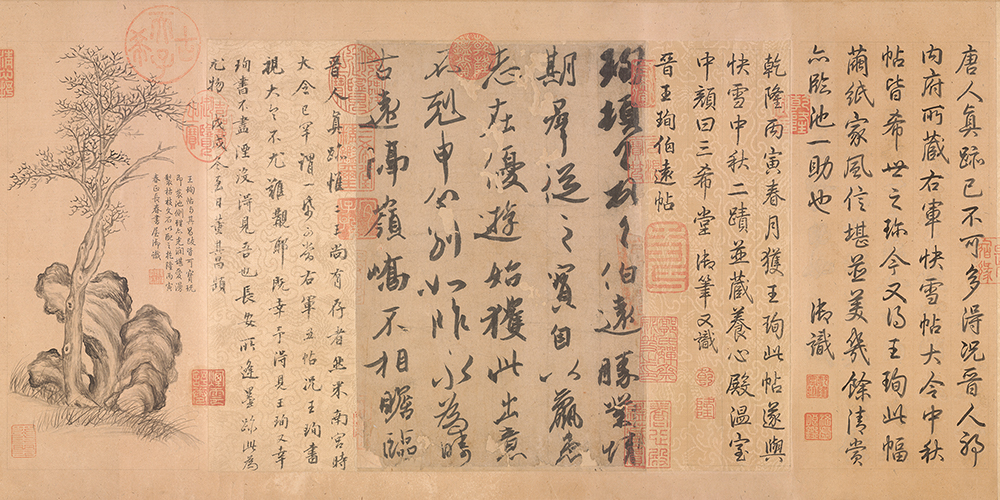 唐人真跡已不可多得況晉人耶
內府所藏右軍快雪帖大令中秋
帖皆希世之珍今又得王珣此幅
繭紙家風信堪並美幾餘清賞
亦臨池一助也 御識
乾隆丙寅春月獲王珣此帖遂與
快雪中秋二蹟並藏養心殿溫室
中顏曰三希堂 御筆又識
晉王珣伯遠帖
珣頓首頓首伯遠勝業情
期群從之寶自以羸患
志在優遊始獲此出意
不剋申分別如昨永為疇
古遠隔嶺嶠不相瞻臨
晉人真跡惟二王尚有存者然米南宮時
大令已罕謂一紙可當右軍五帖況王珣書
視大令不尤難覯耶既幸予得見王珣又幸
珣書不盡湮沒得見吾也長安所逢墨跡此為
尤物 戊戌冬至日董其昌題
王珣帖與其昌跋皆可寶玩
即裝池側理亦光潤堪愛漫
製枯枝文石以配之乾隆丙寅
春正長春書屋御識
古希天子